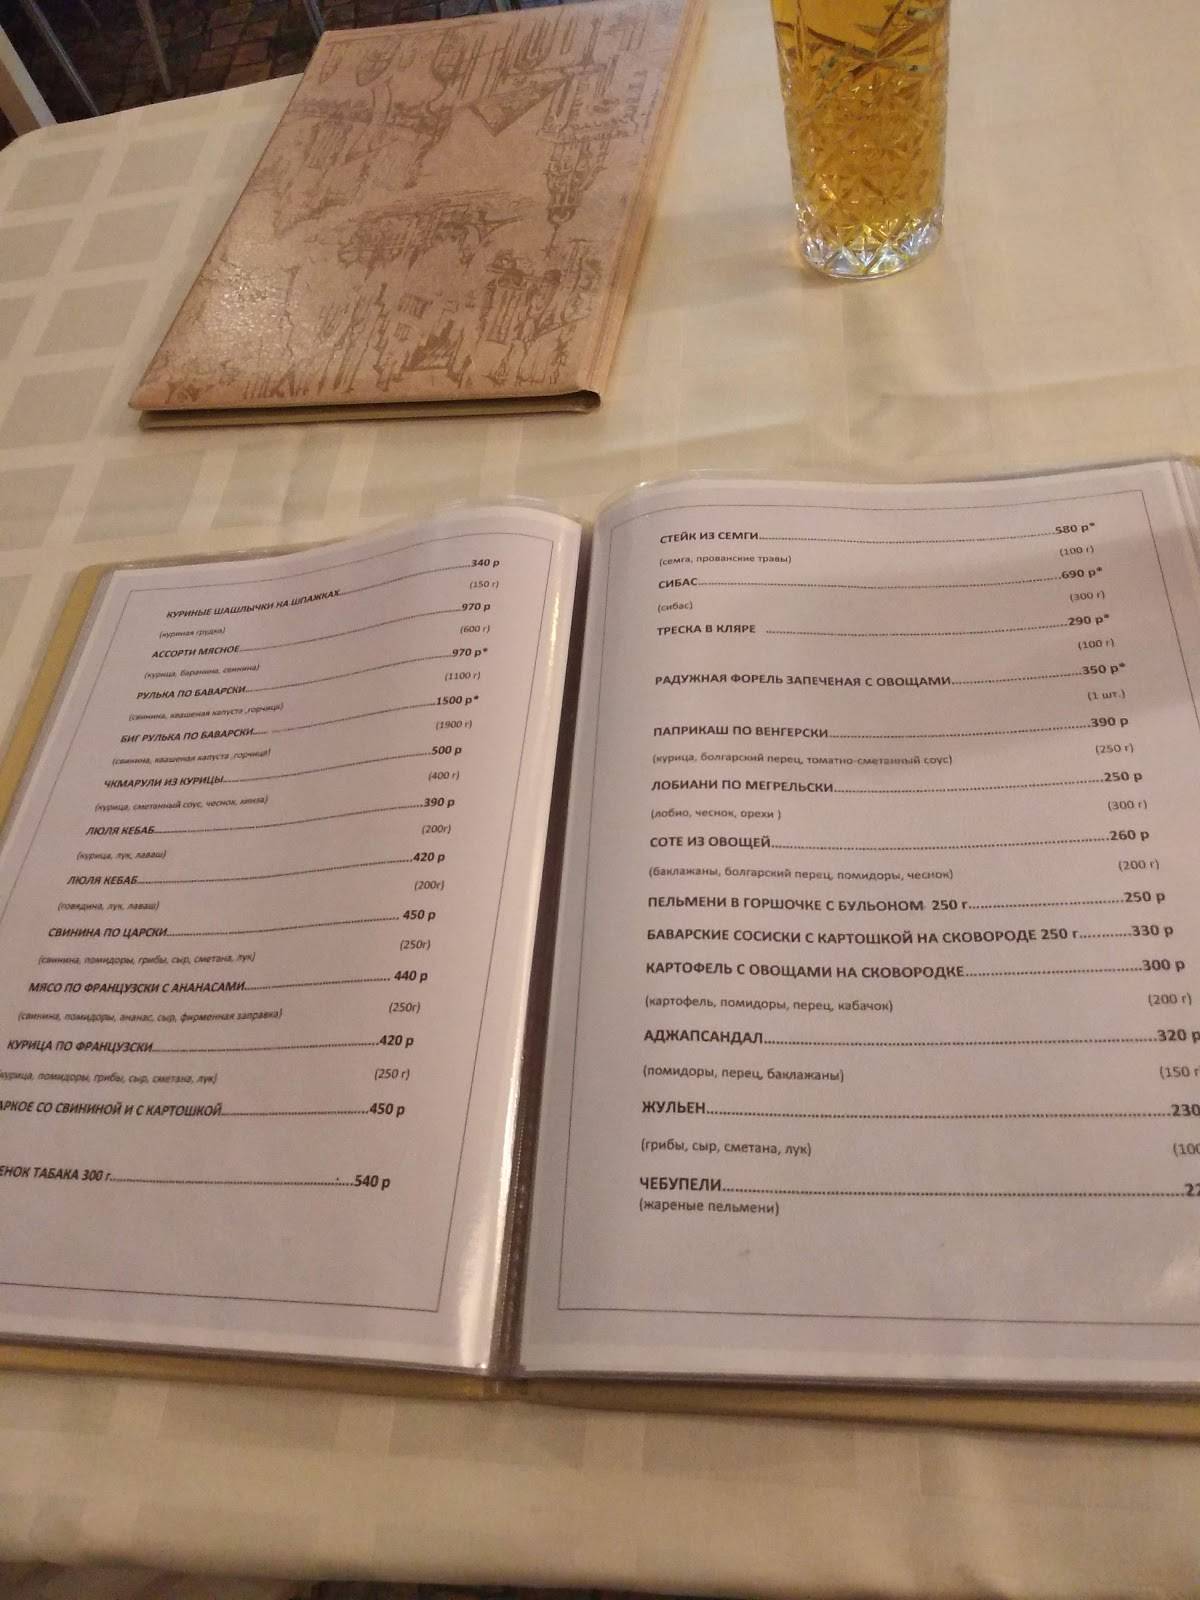 КУРИНЫЕ ШАШЛЫЧКИ НА ШПАЖКАХ....340 р
(куриная грудка) (150 г)
АССОРТИ МЯСНОЕ....970 р
(курица, баранина, свинина) (600 г)
РУЛЬКА ПО БАВАРСКИ....970 р*
(свинина, квашеная капуста ,горчица) (1100 г)
БИГ РУЛЬКА ПО БАВАРСКИ....1500 р*
(свинина, квашеная капуста ,горчица) (1900 г)
ЧКМАРУЛИ ИЗ КУРИЦЫ....500 р
(курица, сметанный соус, чеснок, кинза) (400 г)
ЛЮЛЯ КЕБАБ....390 р
(курица, лук, лаваш) (200г)
ЛЮЛЯ КЕБАБ....420 р
(говядина, лук, лаваш) (200г)
СВИНИНА ПО ЦАРСКИ....450 р
(свинина, помидоры, грибы, сыр, сметана, лук) (250г)
МЯСО ПО ФРАНЦУЗСКИ С АНАНАСАМИ....440 р
(свинина, помидоры, ананас, сыр, фирменная заправка) (250г)
КУРИЦА ПО ФРАНЦУЗСКИ....420 р
курица, помидоры, грибы, сыр, сметана, лук) (250 г)
АРКОЕ СО СВИНИНОЙ И С КАРТОШКОЙ....450 р
ЕНОК ТАБАКА 300 г....540 р
СТЕЙК ИЗ СЕМГИ....580 р*
(семга, прованские травы) (100 г)
СИБАС....690 р*
(сибас) (300 г)
ТРЕСКА В КЛЯРЕ ....290 р*
(100 г)
РАДУЖНАЯ ФОРЕЛЬ ЗАПЕЧЕНАЯ С ОВОЩАМИ....350 р*
(1 шт.)
ПАПРИКАШ ПО ВЕНГЕРСКИ....390 р
(курица, болгарский перец, томатно-сметанный соус) (250 г)
ЛОБИАНИ ПО МЕГРЕЛЬСКИ....250 р
(лобио, чеснок, орехи ) (300 г)
СОТЕ ИЗ ОВОЩЕЙ....260 р
(баклажаны, болгарский перец, помидоры, чеснок) (200 г)
ПЕЛЬМЕНИ В ГОРШОЧКЕ С БУЛЬОНОМ 250 г....250 р
БАВАРСКИЕ СОСИСКИ С КАРТОШКОЙ НА СКОВОРОДЕ 250 г....330 р
КАРТОФЕЛЬ С ОВОЩАМИ НА СКОВОРОДКЕ....300 р
(картофель, помидоры, перец, кабачок) (200 г)
АДЖАПСАНДАЛ....320 р
(помидоры, перец, баклажаны) (150 г
ЖУЛЬЕН....230
(грибы, сыр, сметана, лук) (100
ЧЕБУПЕЛИ....22
(жареные пельмени)